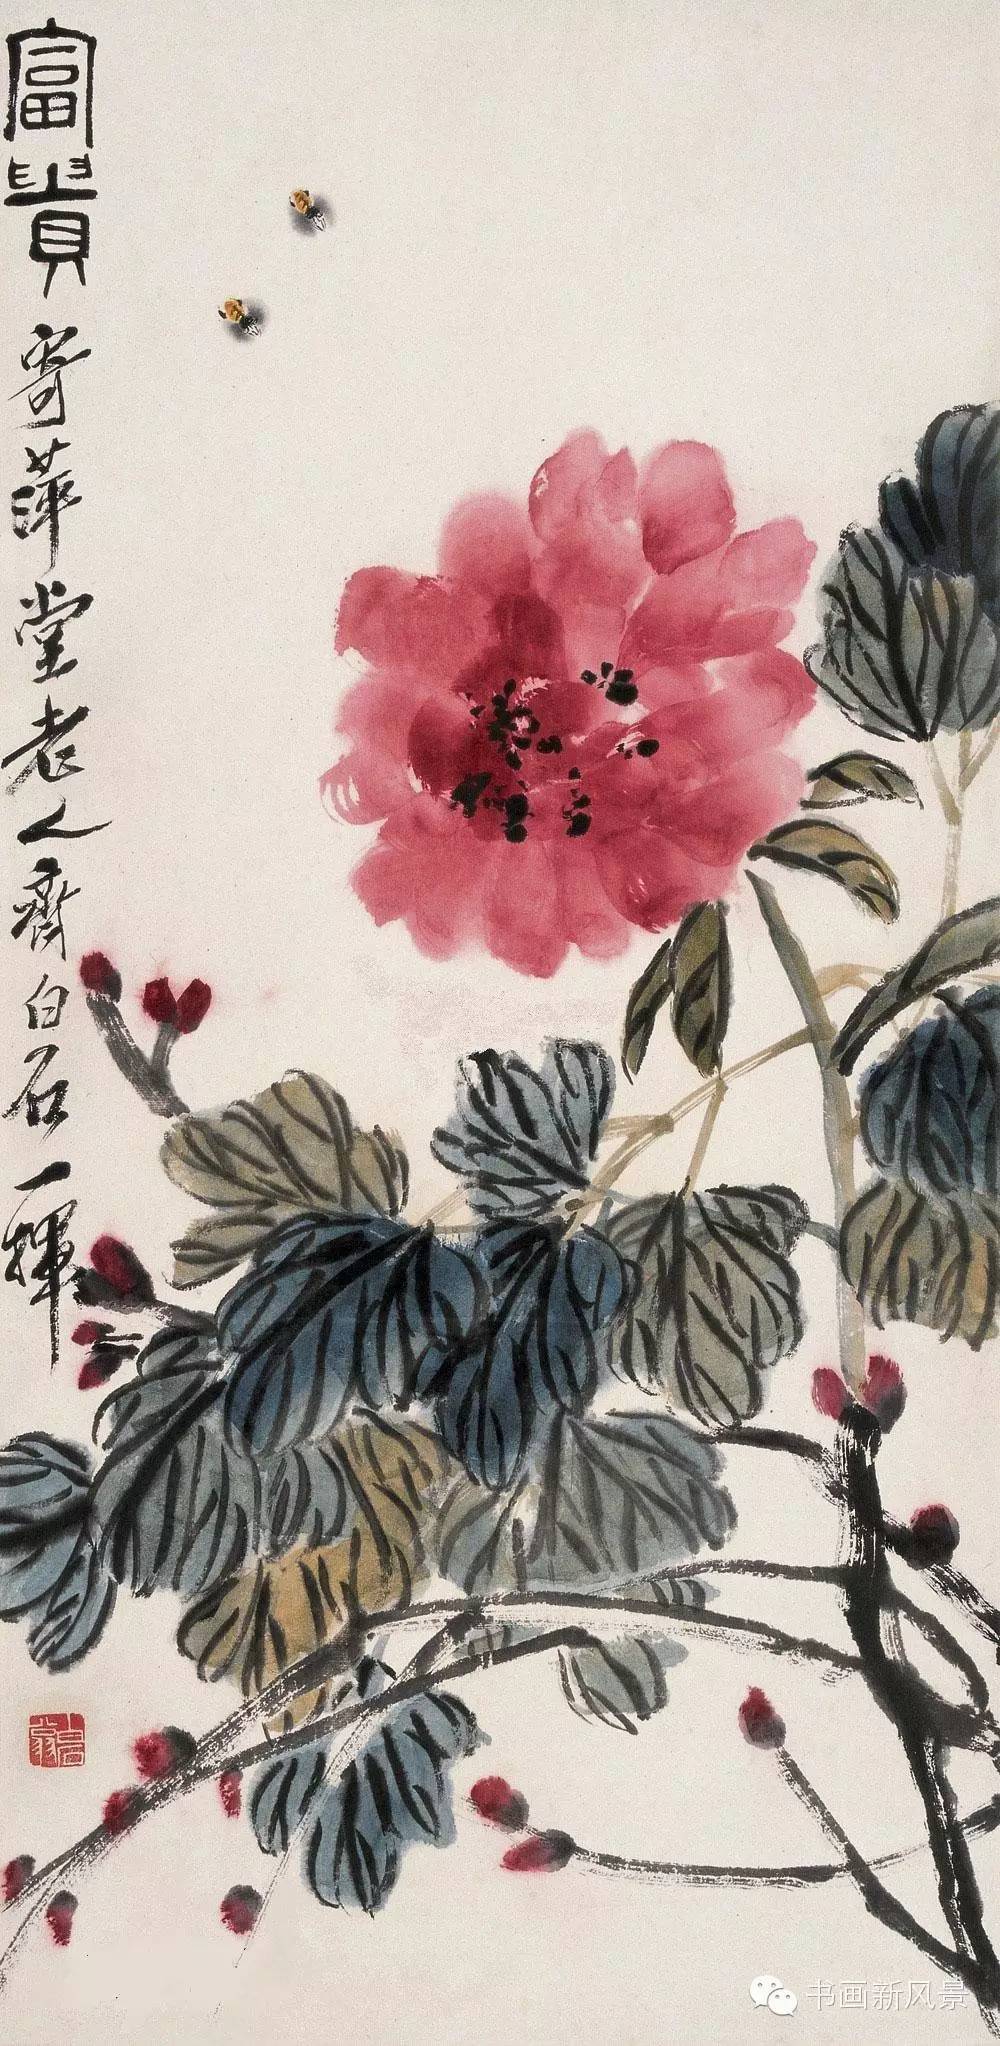 富貴 寄萍堂老人齊白石一揮
白石翁
书画新风景